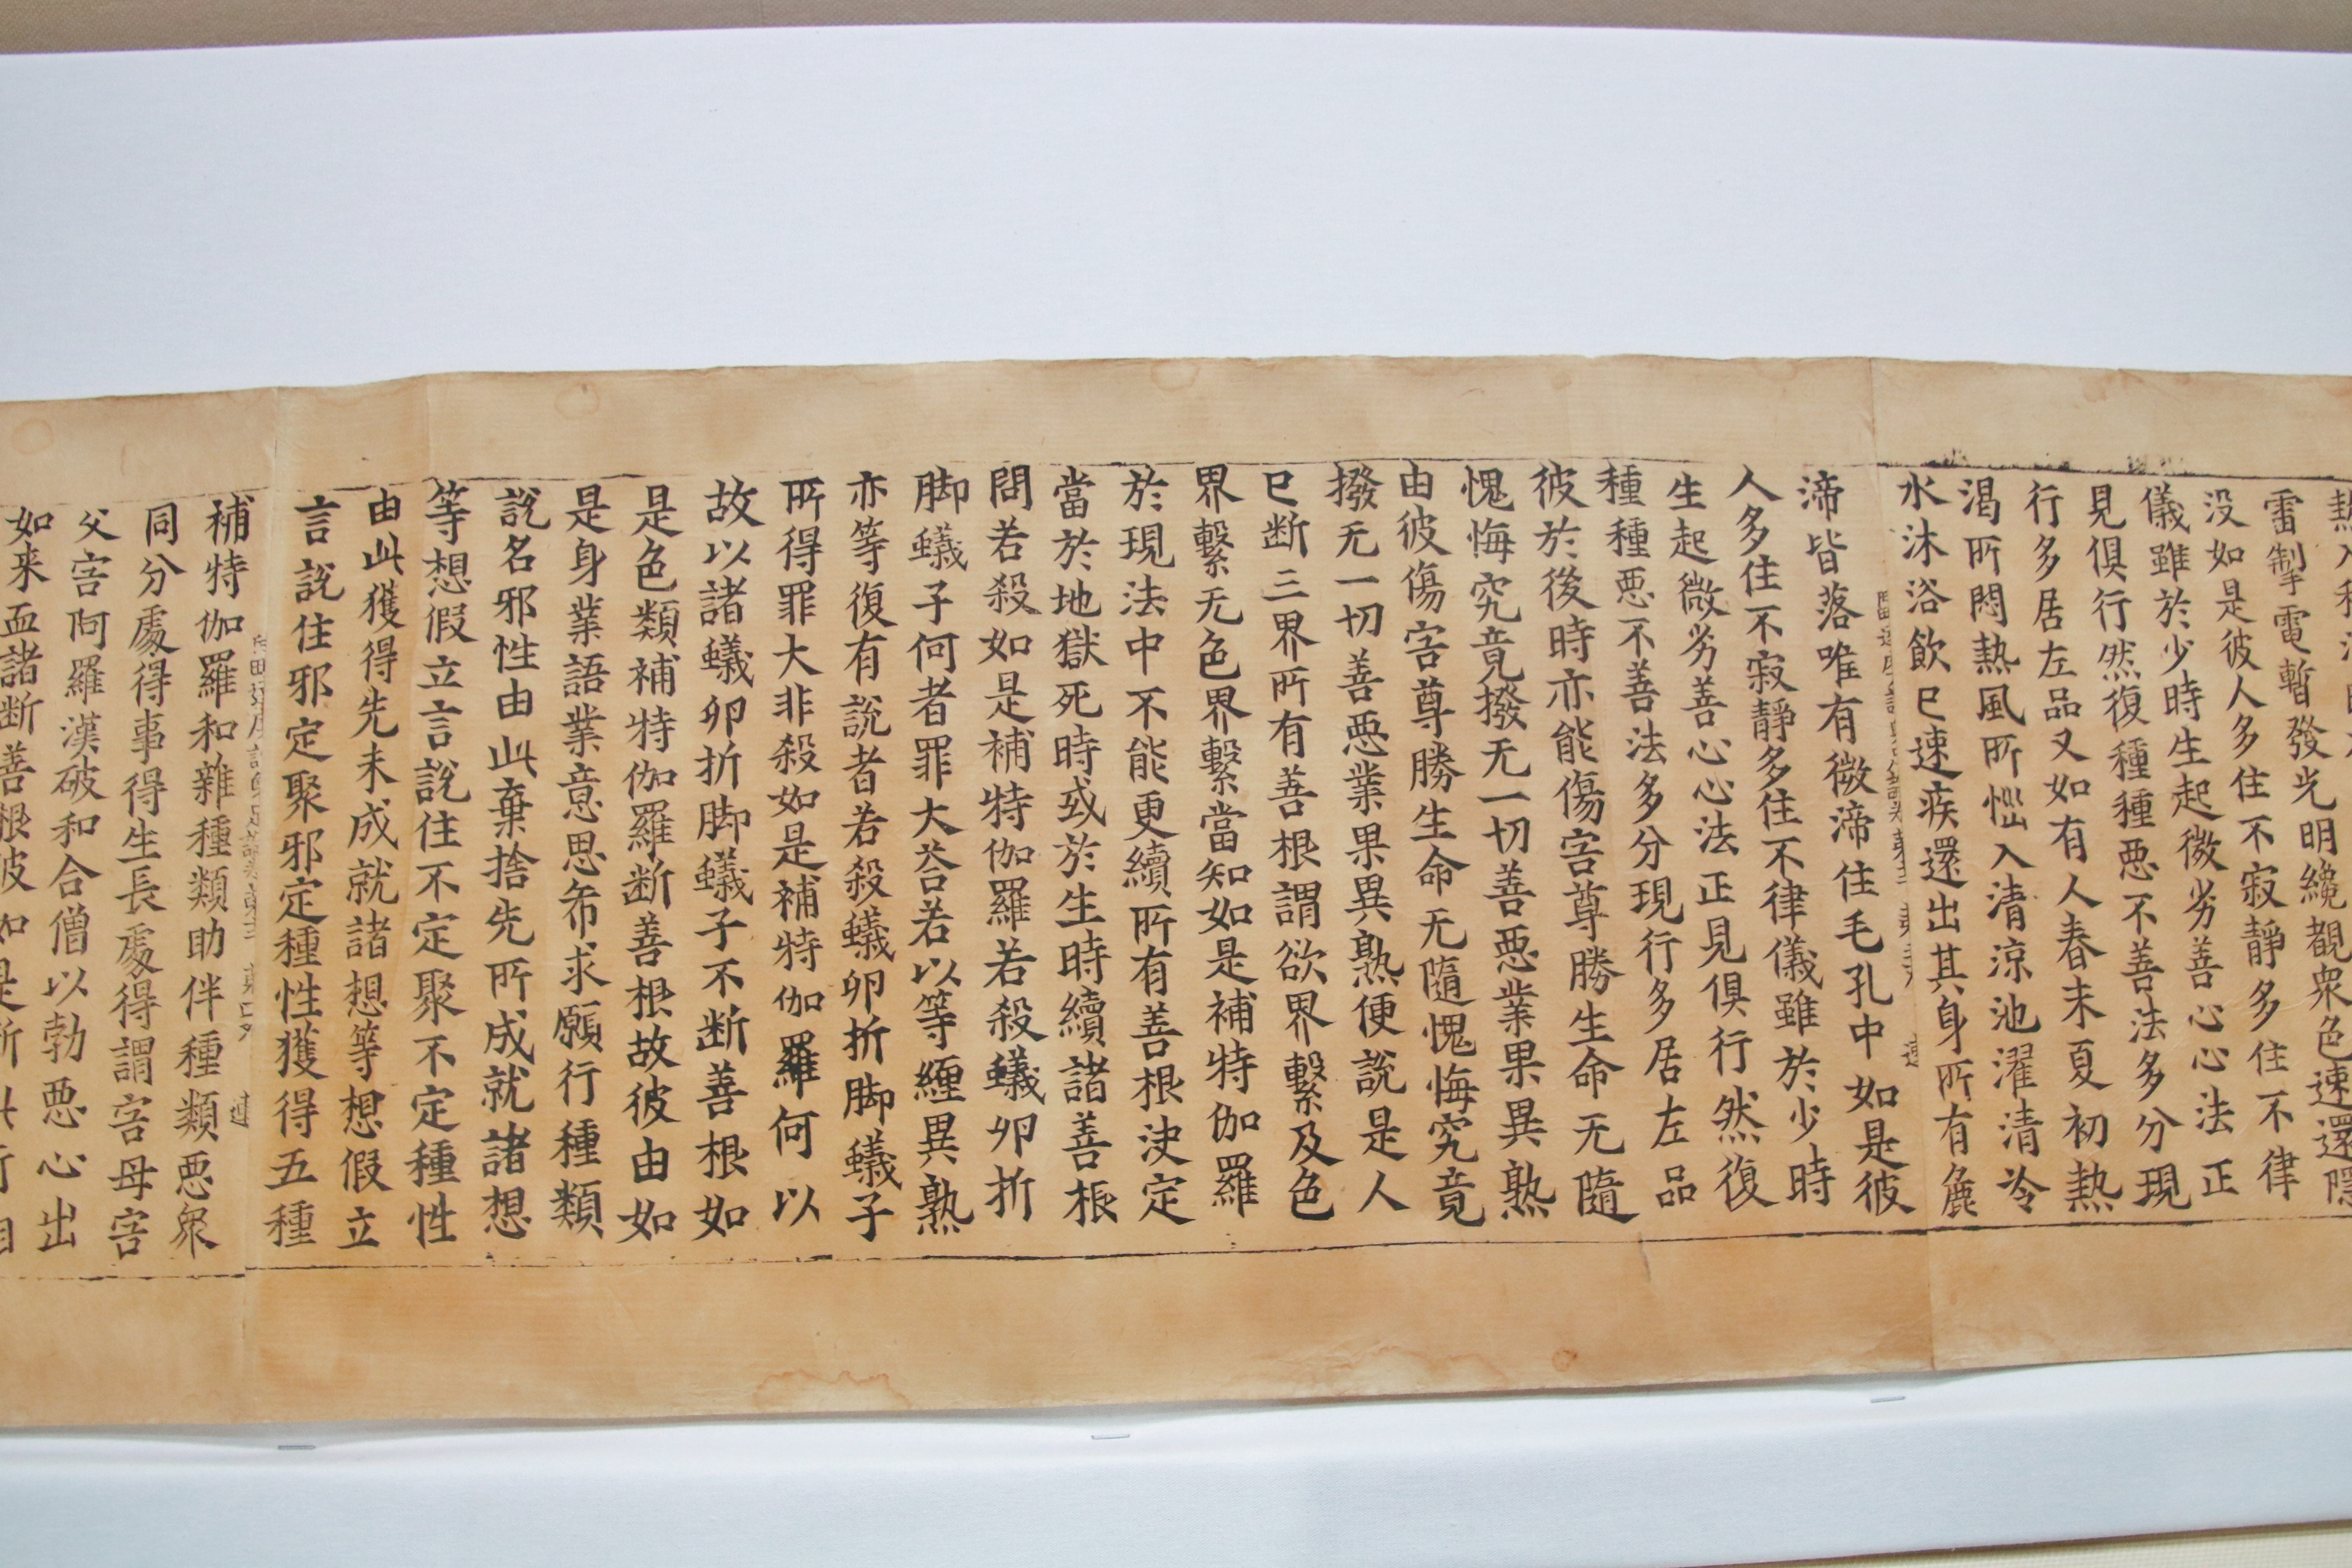 雷掣電暫發光明纔覩衆色速還隱
没如是彼人多住不寂靜多住不律
儀雖於少時生起微劣善心心法正
見俱行然復種種悪不善法多分現
行多居左品又如有人春末夏初熱
渇所悶熱風所惱入清涼池濯清冷
水沐浴飲已速疾還出其身所有麁
渧皆落唯有微渧住毛孔中如是彼
人多住不寂靜多住不律儀雖於少時
生起微劣善心心法正見俱行然復
種種悪不善法多分現行多居左品
彼於後時亦能傷害尊勝生命无隨
愧悔究竟撥无一切善悪業果異熟
由彼傷害尊勝生命无隨愧悔究竟
撥无一切善悪業果異熟便說是人
已断三界所有善根謂欲界繫及色
界繫无色界繫當知如是補特伽羅
於現法中不能更續所有善根决定
當於地獄死時或於生時續諸善根
問若殺如是補特伽羅若殺蟻卵折
脚蟻子何者罪大荅若以等纏異熟
亦等復有說者若殺蟻卵折脚蟻子
所得罪大非殺如是補特伽羅何以
故以諸蟻卵折脚蟻子不断善根如
是色類補特伽羅断善根故彼由如
是身業語業意思希求願行種類
說名邪性由此棄捨先所成就諸想
等想假立言說住不定聚不定種性
由此獲得先未成就諸想等想假立
言說住邪定聚邪定種性獲得五種
補特伽羅和雜種類助伴種類悪衆
同分處得事得生長處得謂害母害
父害阿羅漢破和合僧以勃悪心出
如来血諸断善根彼如是所